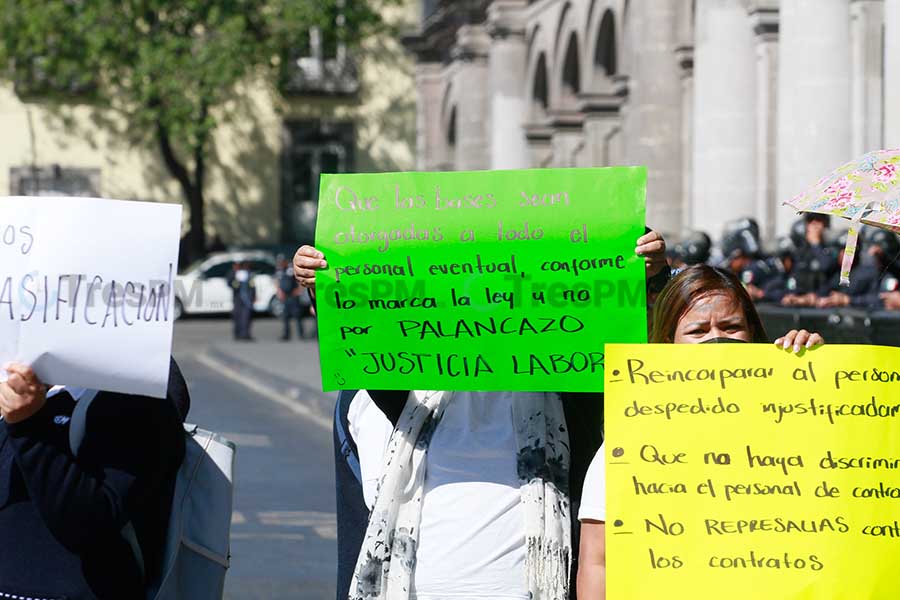 OS
ASIFICACION
Que las bases sean
otorgadas a todo el
personal eventual, conforme
lo marca la ley y no
por PALANCAZO
"JUSTICIA LABOR
• Reincorporar al person
despedido injustificadam
• Que no haya discrimin
hacia el personal de contra
• NO REPRESALIAS cont
los contratos
TresPM
TresPM
TresPM